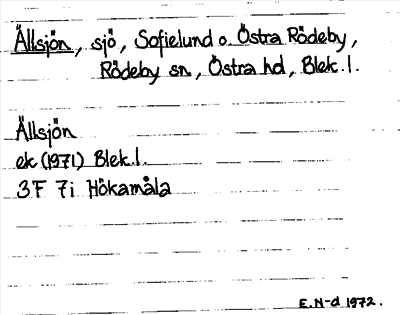 Ällsjön, sjö, Sofielund o. Östra Rödeby,
Rödeby sn, Östra hd, Blek.l.
Ällsjön
ek (1971) Blek.l.
3F 7i Hökamåla
E.N-d 1972.